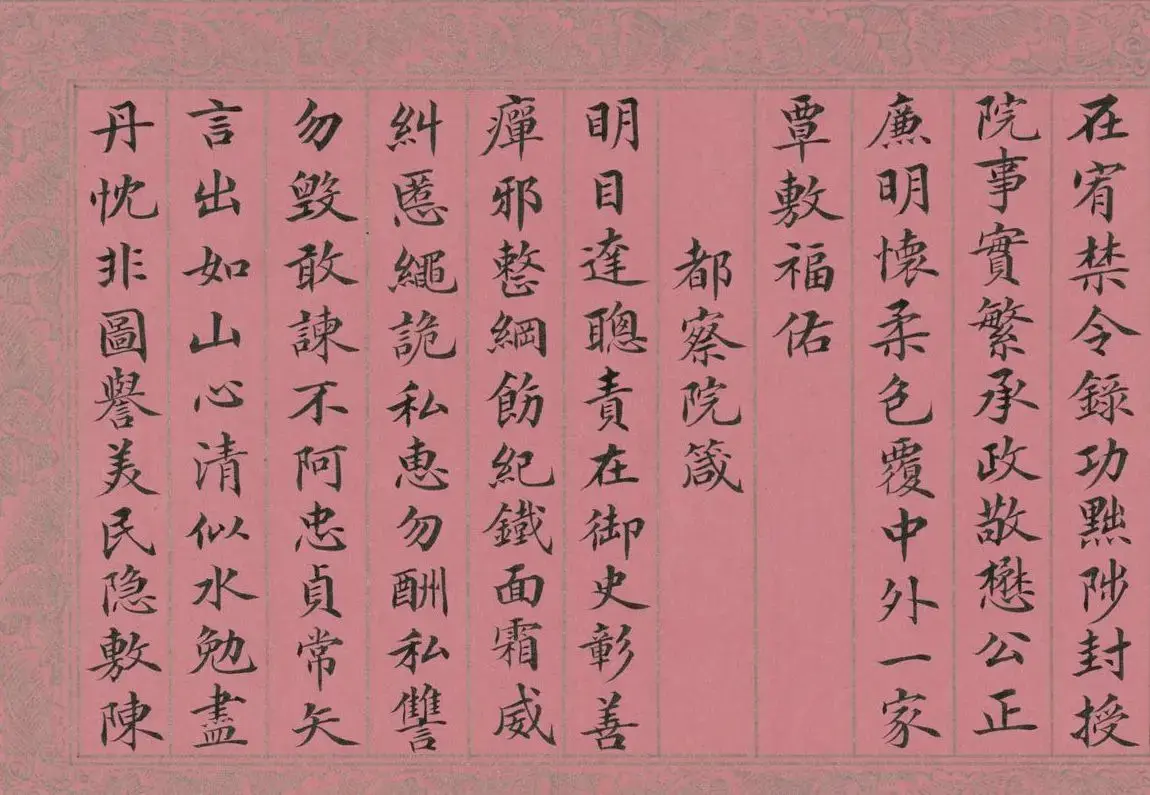 在宥禁令錄功黜陟封授
院事實繁承政敬懋公正
廉明懷柔色覆中外一家
覃敷福佑
都察院箴
明目達聰責在御史彰善
癉邪整綱飭紀鐵面霜威
糾慝繩詭私惠勿酬私讐
勿毀敢諫不阿忠貞常矢
言出如山心清似水勉盡
丹忱非圖譽美民隐敷陳